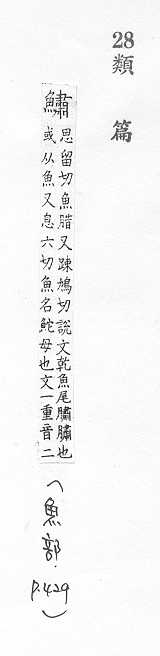 28
類 篇
鱐
思留切魚腊又踈鳩切說文乾魚尾鱐鱐也
或从魚又息六切魚名鮀母也文一重音二
(魚部.
P.429)